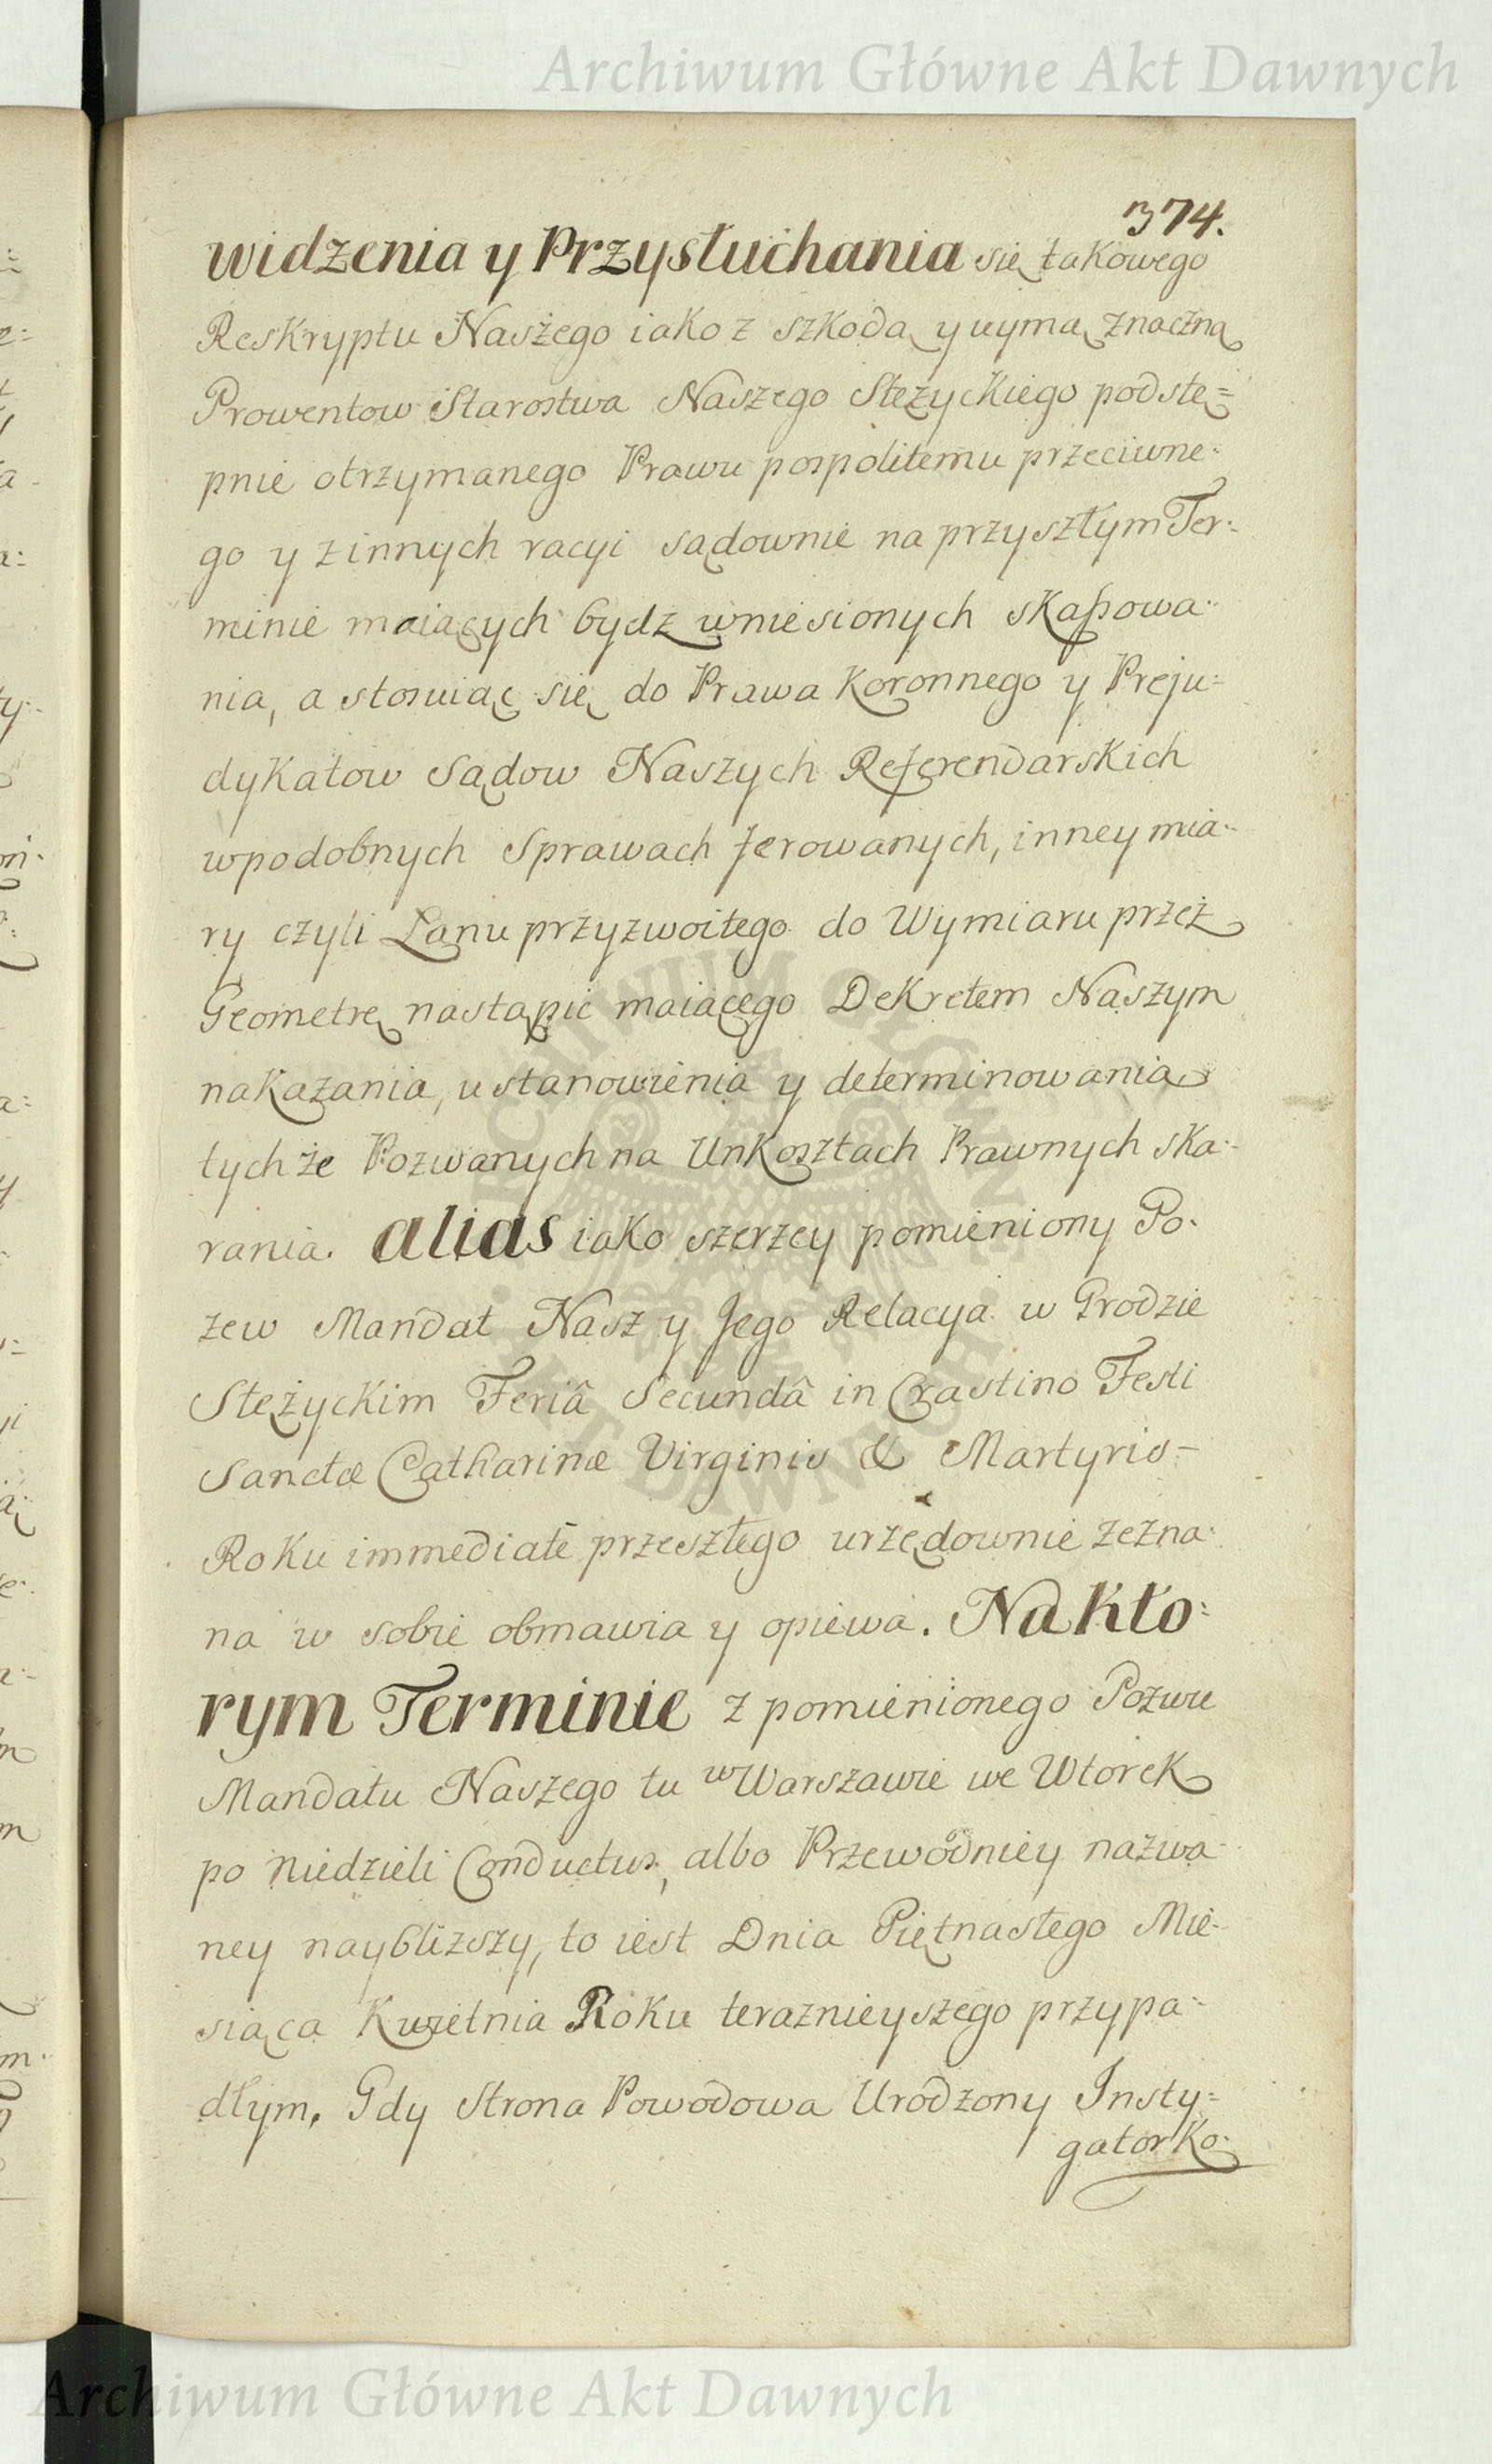 Archiwum Główne Akt Dawnych
374.
widzenia y Przysłuchania się takowego
Reskryptu Naszego iako z szkodą y uymą znaczną
Prowentow Starostwa Naszego Stężyckiego podstę=
pnie otrzymanego Prawu pospolitemu przeciwne=
go y z innych racyi sądownie na przyszłym Ter=
minie maiących bydz wniesionych skaſsowa=
nia, a stosuiąc się do Prawa Koronnego y Preju=
dykatow Sądow Naszych Referendarskich
w podobnych Sprawach ferowanych, inney mia=
ry czyli Łanu przyzwoitego do Wymiaru przez
Geometrę nastąpić maiącego Dekretem Naszym
nakazania, ustanowienia y determinowania
tychże Pozwanych na Unkosztach Prawnych ska=
rania. alias iako szerzey pomieniony Po=
zew Mandat Nasz y Jego Relacya w Grodzie
Stężyckim Feriâ Secundâ in Crastino Festi
Sanctæ Catharinæ Virginis & Martyris
Roku immediatè przeszłego urzędownie zezna=
na w sobie obmawia y opiewa. Na kto=
rym Terminie z pomienionego Pozwu
Mandatu Naszego tu w Warszawie we Wtorek
po niedzieli Conductus, albo Przewodniey nazwa=
ney naybliższy, to iest Dnia Piętnastego Mie=
siąca Kwietnia Roku teraznieyszego przypa=
dłym. Gdy Strona Powodowa Urodzony Insty=
gator Ko=
Archiwum Główne Akt Dawnych